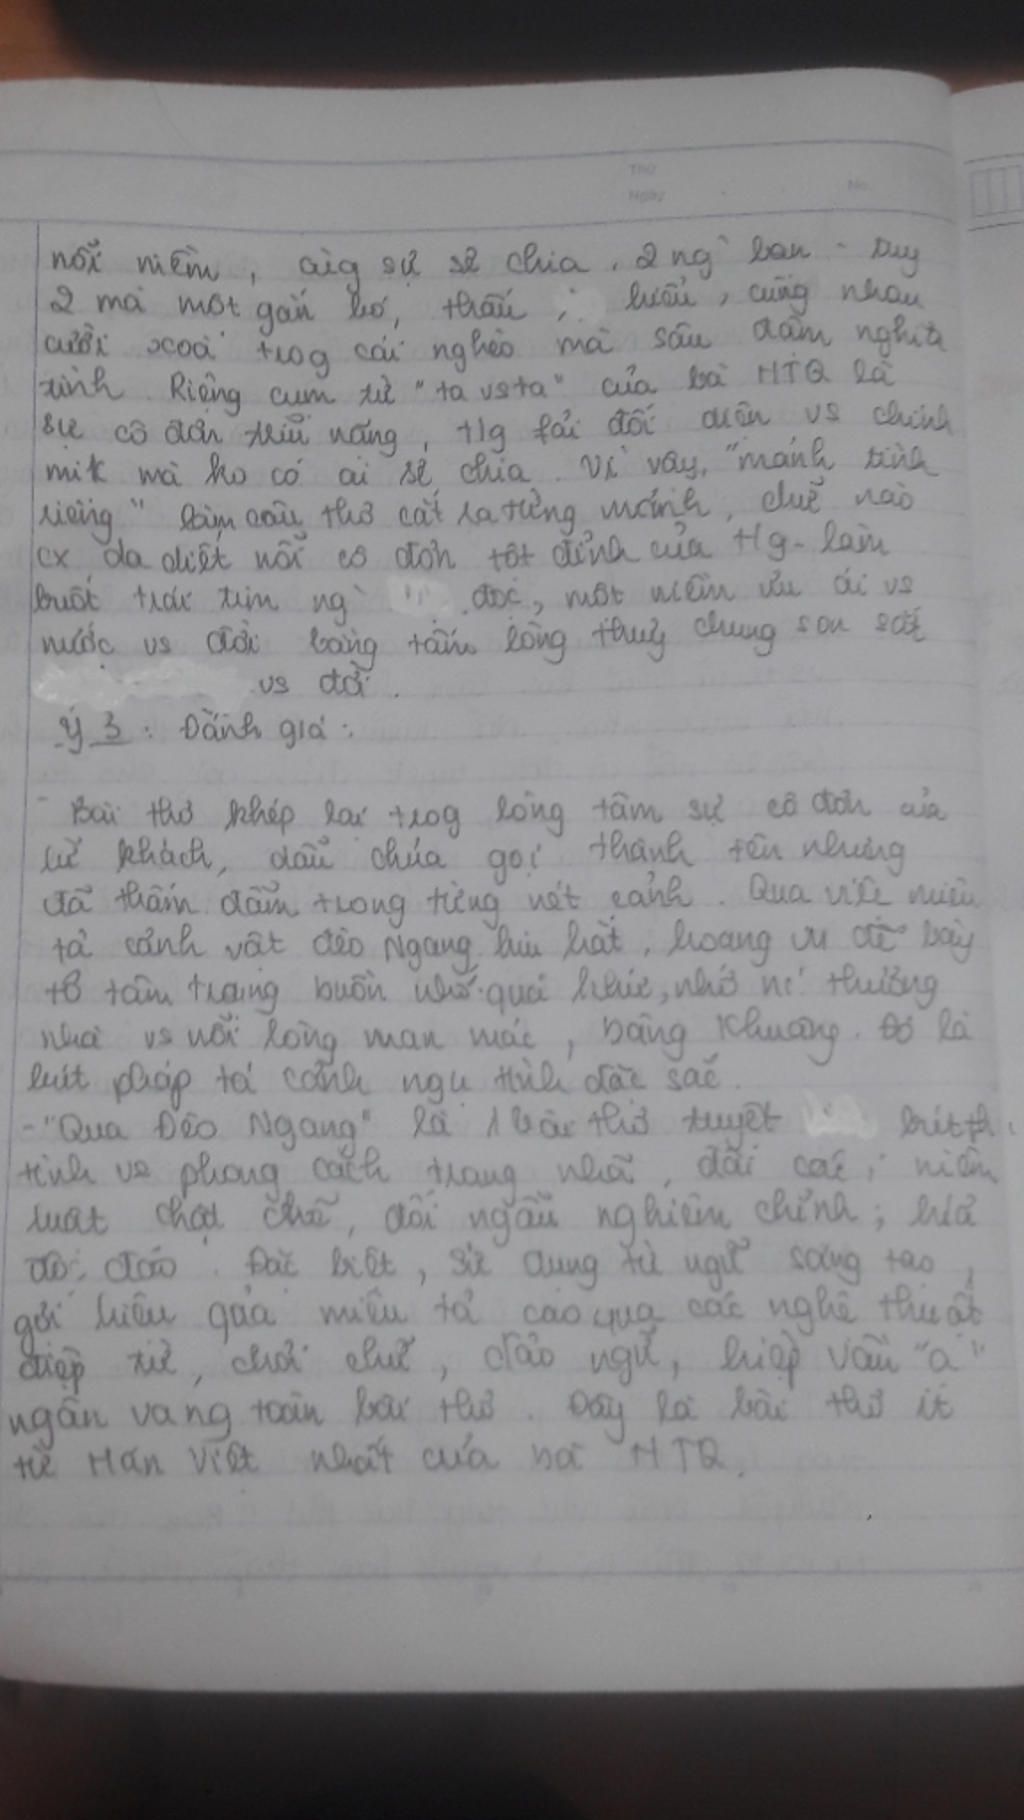 Thứ
Ngày
No.
nỗi niềm, cùg sự sẻ chia. 2 ng` bạn - tuy
2 mà một gắn bó, thấu hiểu, cùng nhau
cười xoà trog cái nghèo mà sâu đậm nghĩa
tình. Riêng cụm từ "ta vs ta" của bà HTQ là
sự cô đơn trĩu nặng, fải đối diện vs chính
mik mà ko có ai sẻ chia. Vì vậy, "mảnh tình
riêng" làm câu thơ cắt ra từng mảnh, chữ nào
cx da diết nỗi cô đơn tột đỉnh của - làm
buốt trái tim ng` đọc, một niềm ưu ái vs
nước vs đời bằng tấm lòng thuỷ chung son sắt
vs đời.
Ý 3: Đánh giá:
- Bài thơ khép lại trog lòng tâm sự cô đơn của
lữ khách, dẫu chưa gọi thành tên nhưng
đã thấm đẫm trong từng nét cảnh. Qua việc miêu
tả cảnh vật đèo Ngang hiu hắt, hoang vu để bày
tỏ tâm trạng buồn nhớ quá khứ, nhớ nc' thương
nhà vs nỗi lòng man mác, bâng khuâng. Đó là
bút pháp tả cảnh ngụ tình đặc sắc.
- "Qua Đèo Ngang" là 1 bài thơ tuyệt bút
tình vs phong cách trang nhã, đài các; niêm
luật chặt chẽ, đối ngẫu nghiêm chỉnh;
độc đáo. Đặc biệt, sử dụng từ ngữ sáng tạo,
gợi hiệu quả miêu tả cao qua các nghệ thuật
điệp từ, chơi chữ, đảo ngữ, hiệp vần "a"
ngân vang toàn bài thơ. Đây là bài thơ ít
từ Hán Việt nhất của bà HTQ.